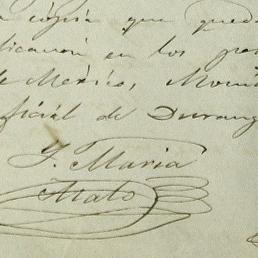 copia que queda
licacion en los per
de Mexico, Moni
oficial de Durang
J. Maria
Malo